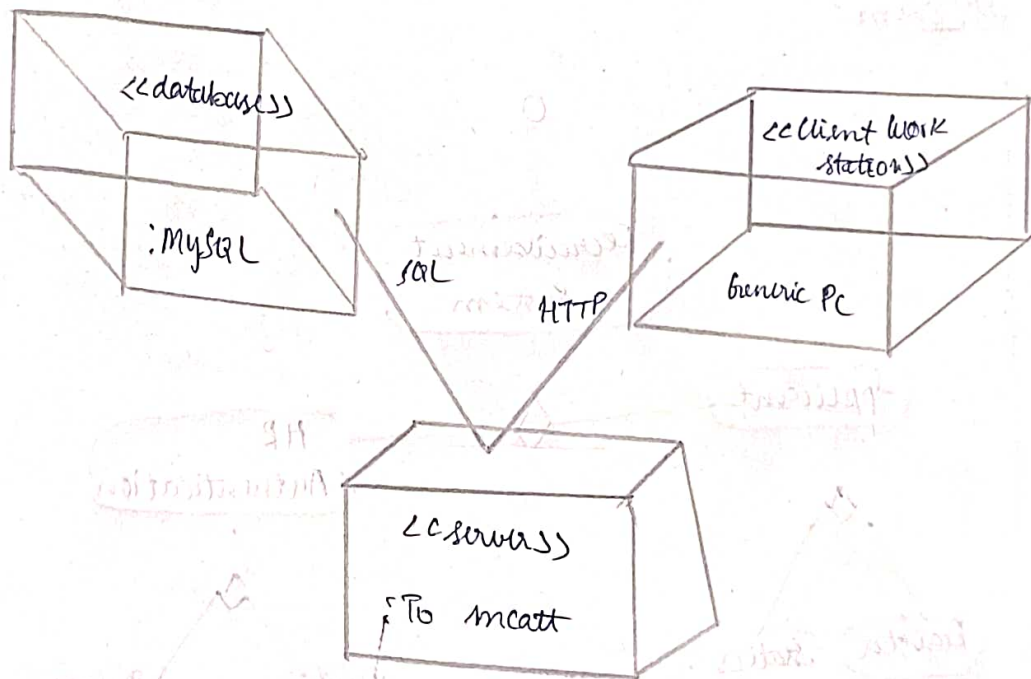 <<database>>
:MySQL
<<Client Work
station>>
Generic PC
SQL
HTTP
<<server>>
:To mcatt